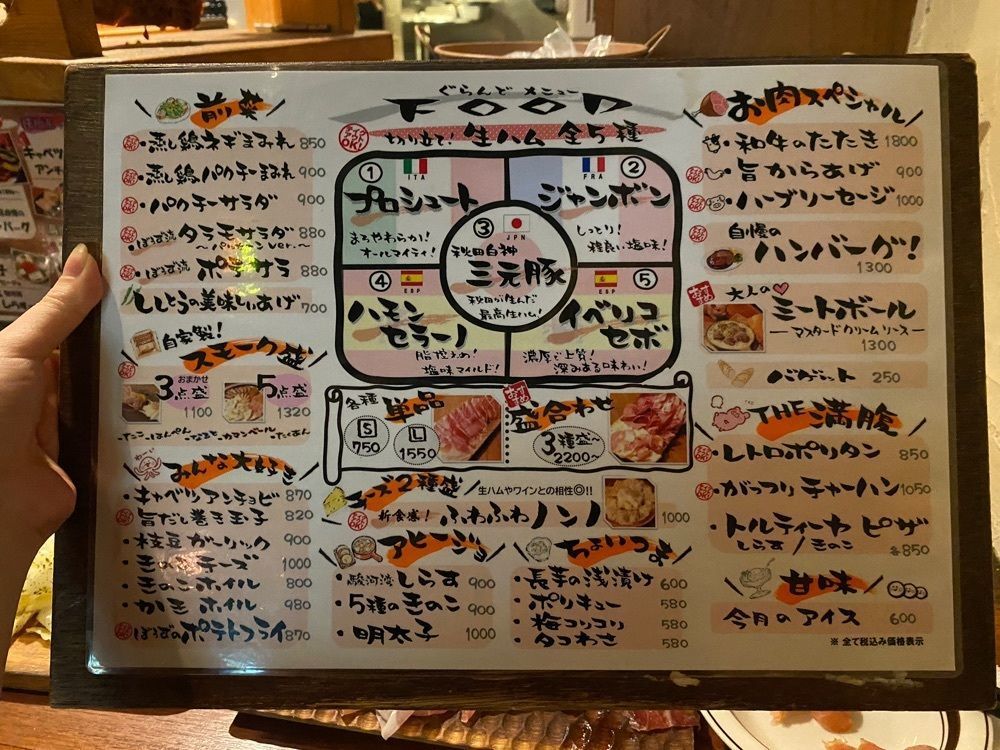 ぐらんどメニュー
FOOD
前菜
・蒸し鶏ネギまみれ 850
・蒸し鶏パクチーまみれ 900
・パクチーサラダ 900
・ぼうず流 タラモサラダ 880
・ぼうず流 ポテサラ 880
ししとうの美味しいあげ 700
自家製!
スモーク盛
おまかせ
3点盛 1100
5点盛 1320
みんな大好き
・キャベツアンチョビ 870
・旨だし巻き玉子 820
・枝豆ガーリック 900
・きのこチーズ 1000
・きのこホイル 800
・かきホイル 980
・ぼうずのポテトフライ 870
切り立て! 生ハム 全5種
① ITA
プロシュート
まろやわらか!
オールマイティ!
② FRA
ジャンボン
しっとり!
程良い塩味!
③ JPN
秋田白神
三元豚
秋田が生んだ
最高生ハム!
④ ESP
ハモン
セラーノ
脂控えめ!
塩味マイルド!
⑤ ESP
イベリコ
セボ
濃厚で上質!
深みある味わい!
各種 単品
S 750
L 1550
おすすめ
盛合わせ
3種盛~
2200~
チーズ2種盛
生ハムやワインとの相性◎!!
新食感! ふわふわノンノ 1000
アヒージョ
・駿河湾しらす 900
・5種のきのこ 900
・明太子 1000
ちょいつま
・長芋の浅漬け 600
・ポリキュー 580
・梅コリコリ 580
・タコわさ 580
お肉スペシャル
・和牛のたたき 1800
・旨からあげ 900
・ハーブリーセージ 1000
自慢の
ハンバーグ!
1300
おすすめ
大人の
ミートボール
―マスタードクリームソース―
1300
バゲット 250
THE満腹
・レトロポリタン 850
・がっつりチャーハン 1050
・トルティーヤピザ
しらす/きのこ 各850
甘味
今月のアイス 600
※ 全て税込み価格表示